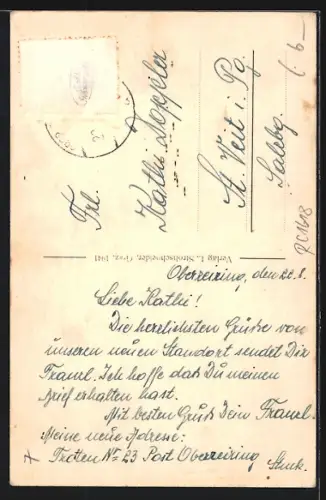 Frl.
Kathi Doppler
St. Veit i. Pg.
Salzbg.
Verlag L. Strohschneider, Graz, 1941
Oberzeiring, den 22.8.
Liebe Kathi!
Die herzlichsten Grüße von
unserem neuen Standort sendet Dir
Franzl. Ich hoffe daß Du meinen
Brief erhalten hast.
Mit besten Gruß Dein Franzl.
Meine neue Adresse:
Nº 23 Post Oberzeiring
Stmk.